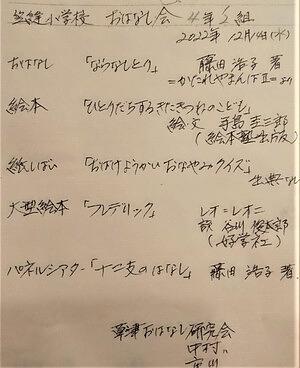 笠縫小学校 おはなし会 4年2組
2022年 12月14日(水)
おはなし 「ならなしとり」 藤田 浩子 著
=かたれやまんばⅡ=より
絵本 「ひとりだちするきたきつねのこども」
絵・文 手島 圭三郎
(絵本塾出版)
紙しばい 「おばけようかいおなやみクイズ」
出典なし
大型絵本 「フレデリック」 レオ=レオニ
訳 谷川 俊太郎
(好学社)
パネルシアター 「十二支のはなし」 藤田 浩子 著
草津おはなし研究会
中村
市川